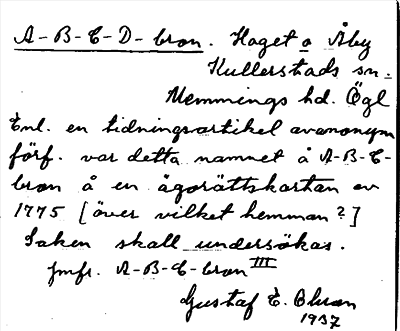 A-B-C-D-bron. Haget o Åby
Kullerstads sn.
Memmings hd. Ögl
Enl. en tidningsartikel av anonym
förf. var detta namnet å A-B-C-
bron å en ägorättskartan av
1775 [över vilket hemman?]
Saken skall undersökas.
Jmfr. A-B-C-bron III
Gustaf E. Ohson
1937